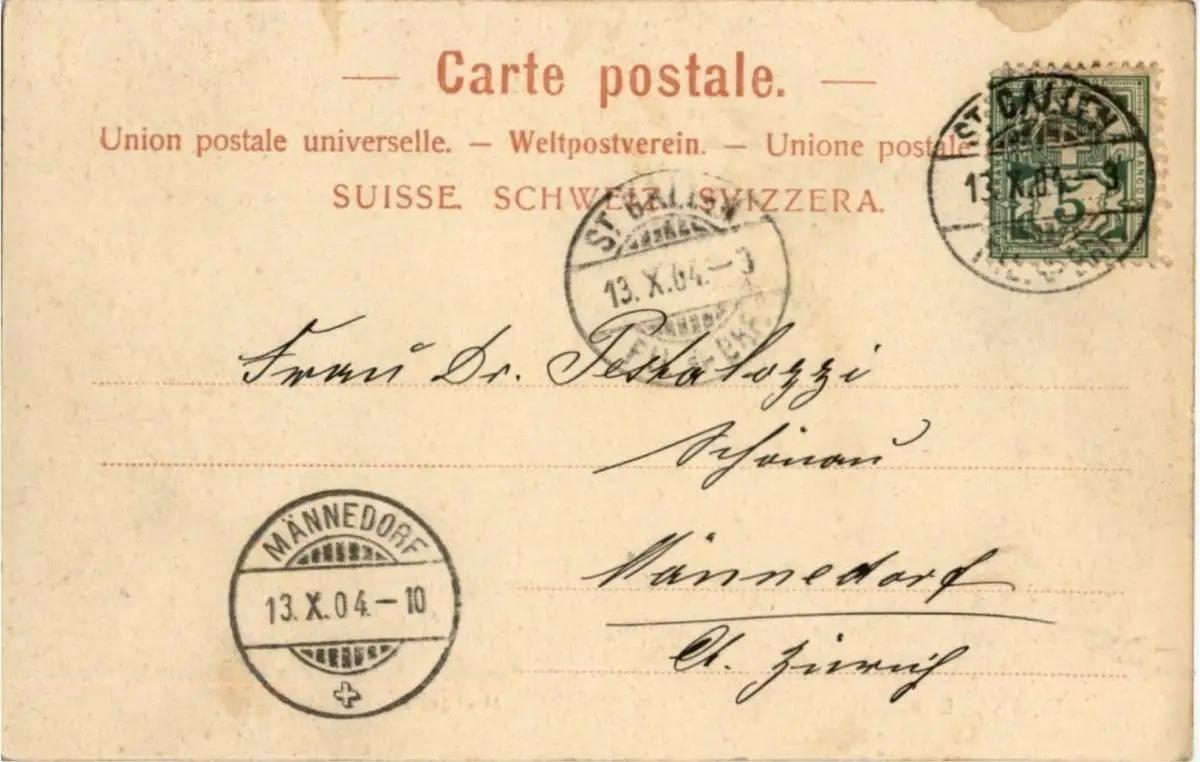 — Carte postale. —
Union postale universelle. — Weltpostverein. — Unione postale
SUISSE. SCHWEIZ. SVIZZERA.
ST. GALLEN
13. X. 04. – 9
FRANCO
5
ST. GALLEN
13. X. 04. – 9
Frau Dr. Pestalozzi
Schönau
MÄNNEDORF
13. X. 04. – 10
Männedorf
Ct. Zürich